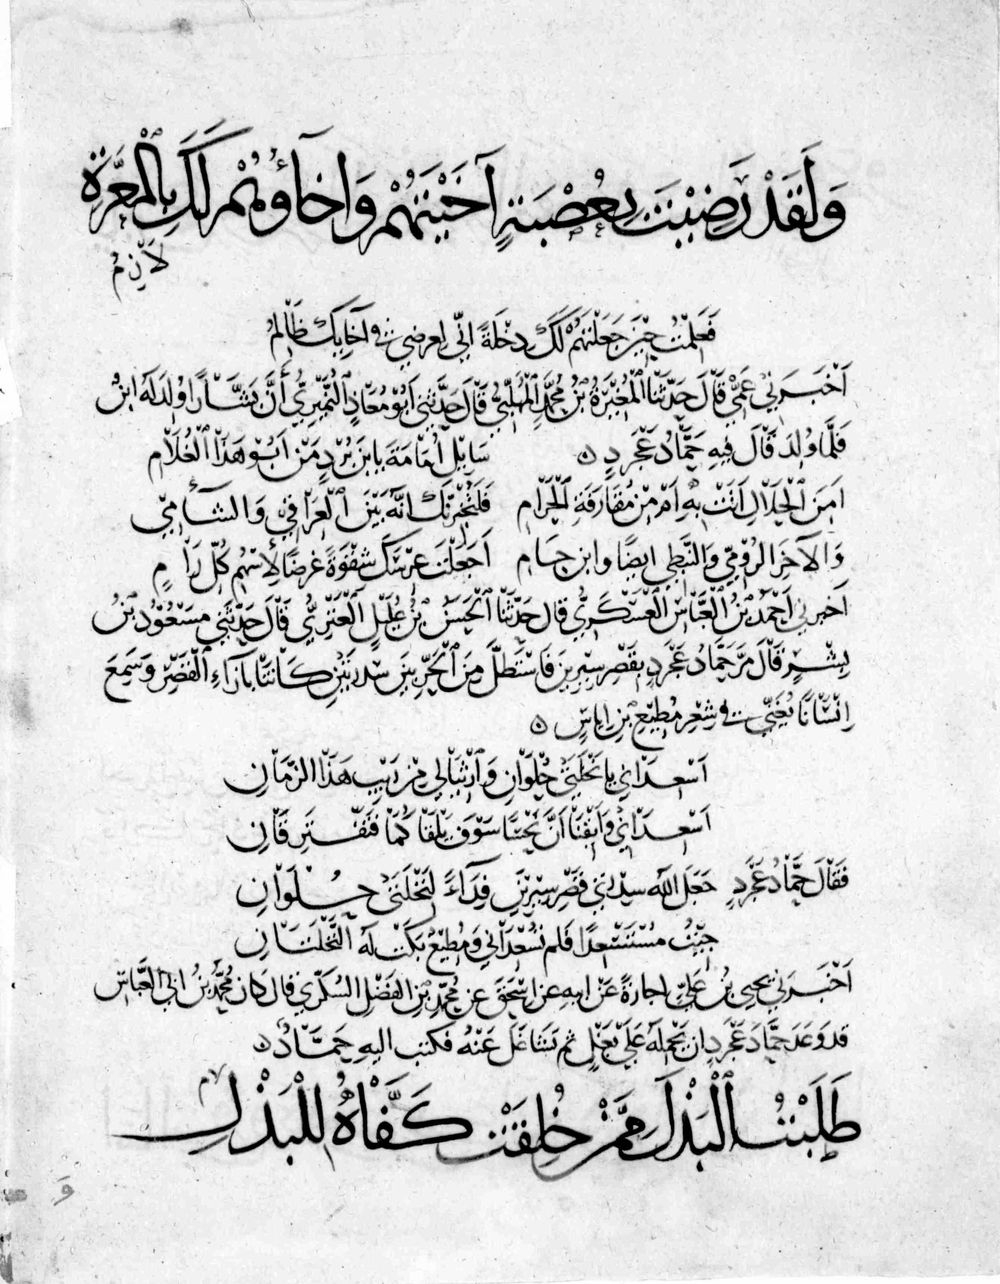 وَلَقَدْ رَضِيْتَ بِعُصْبَةٍ آخَيْتَهُمْ وَاِخَآؤُهُمْ لَكَ بِالْمَعَرَّةِ
لَازِمُ
فَعَلِمْتُ حِيْنَ جَعَلْتَهُمْ لَكَ دِخْلَةً اِنِّي لِعِرْضِي فِي اَخَايِكَ ظَالِمُ
اَخْبَرَنِي عَمِّي قَالَ حَدَّثَنَا الْمُغِيْرَةُ بْنُ مُحَمَّدٍ الْمُهَلَّبِيُّ قَالَ حَدَّثَنِي اَبُوْ مُعَاذٍ النُّمَيْرِيُّ أَنَّ بَشَّارًا وُلِدَ لَهُ ابْنٌ
فَلَمَّا وُلِدَ قَالَ فِيهِ حَمَّادُ عَجْرَدٍ ه سَايِلْ اُمَامَةَ يَا بْنَ بُرْدٍ مَنْ اَبُوْ هَذَا الْغُلَامِ
اَمِنَ الْحَلَالِ اَتَتْ بِهِ اَمْ مِنْ مُقَارَفَةِ الْحَرَامِ فَلَتُخْبِرَنَّكَ اَنَّهُ بَيْنَ الْعِرَاقِي وَالشَّآمِي
وَالآخَرِ الرُّوْمِيِّ وَالنَّبَطِي ايضًا وابن حَامِ اَجَعَلْتَ عِرْسَكَ شِقْوَةً غَرَضًا لِاَسْهُمِ كُلِّ رَامٍ
اخبرني اَحْمَدُ بْنُ الْعَبَّاسِ الْعَسْكَرِيُّ قَالَ حَدَّثَنَا الْحَسَنُ بْنُ عُلَيْلٍ الْعَنَزِيُّ قَالَ حَدَّثَنِي مَسْعُوْدُ بْنُ
بِشْرٍ قَالَ مَرَّ حَمَّادُ عَجْرَدٍ بِقَصْرِ شِيْرِيْنَ فَاسْتَظَلَّ مِنَ الْحَرِّ بَيْنَ سِدْرَتَيْنِ كَانَتَا بِاِزَاءِ الْقَصْرِ وَسَمِعَ
اِنْسَانًا يُغَنِّي فِي شِعْرِ مُطِيْعِ بْنِ اِيَاسٍ ه
اَسْعِدَانِي يَا نَخْلَتَيْ حُلْوَانِ وَارْثِيَا لِي مِنْ رَيْبِ هَذَا الزَّمَانِ
اَسْعِدَانِي وَاَيْقِنَا اَنَّ نَحْسًا سَوْفَ يَلْقَاكُمَا فَتَفْتَرِقَانِ
فَقَالَ حَمَّادُ عَجْرَدٍ جَعَلَ اللّٰهُ سِدْرَتَيْ قَصْرِ شِيْرِيْنِ فِدَآءً لِنَخْلَتَيْ حُلْوَانِ
جِيْتُ مُسْتَسْعِدًا فَلَمْ تُسْعِدَانِي وَمُطِيْعٌ بَكَتْ لَهُ النَّخْلَتَانِ
اَخْبَرَنِي يحيى بْنُ عَلِيٍّ اجازةً عَنْ ابيهِ عن اِسْحَقَ عن مُحَمَّدِ بْنِ الْفَضْلِ السُّكَّرِيِّ قَالَ كَانَ مُحَمَّدُ بْنُ ابي الْعَبَّاسِ
قد وَعَدَ حَمَّادَ عَجْرَدٍ ان يَحْمِلَهُ عَلَى بَغْلٍ ثم تَشَاغَلَ عَنْهُ فكتب اليهِ حَمَّادٌ ه
طَلَبْتُ الْبَذْلَ مِمَّنْ خُلِقَتْ كَفَّاهُ لِلْبَذْلِ